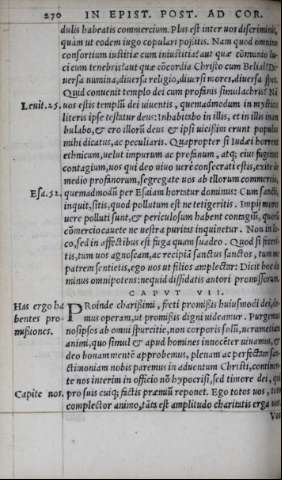 270 IN EPIST. POST. AD COR.
dulis habeatis commercium. Plus est inter uos discriminis,
quàm ut eodem iugo copulari possitis. Nam quod omnino
consortium iustitiæ cum iniustitia? aut quæ cōmunio lu
ci cum tenebris? aut quæ cōcordia Christo cum Belial? Di
uersa numina, diuersa religio, diuersi mores, diuersa spes.
Quid conuenit templo dei cum profanis simulachris? Nā
Leuit. 25. uos estis templū dei uiuentis, quemadmodum in mysticis
literis ipse testatur deus: Inhabitabo in illis, et in illis inam
bulabo, & ero illorū deus & ipsi uicissim erunt populus
mihi dicatus, ac peculiaris. Quapropter si Iudæi horrent
ethnicum, uelut impurum ac profanum, atq; eius fugiunt
contagium, uos qui deo uiuo uerè consecrati estis, exite de
medio profanorum, segregate uos ab illorum commercio,
Esa. 52. quemadmodū per Esaiam hortatur dominus: Cum sancti,
inquit, sitis, quod pollutum est ne tetigeritis. Impij mores
uere polluti sunt, & periculosum habent contagiū, quorū
cōmercio cauete ne uestra puritas inquinetur. Non in lo
co, sed in affectibus est fuga quam suadeo. Quod si
tis, tum uos agnoscam, ac recipiā sanctus sanctos, tum me
patrem sentietis, ego uos ut filios amplectar: Dicit hoc do
minus omnipotens: nequid diffidatis autori promissorum.
CAPVT VII.
Has ergo ha
bentes pro-
missiones.
PRoinde charissimi, freti promissis huiusmodi dei,
mus operam, ut promissis digni uideamur. Purgemus
nosipsos ab omni spurcitie, non corporis solū, uerametiam
animi, quo simul & apud homines innocēter uiuamus, &
deo bonam mentē approbemus, plenam ac perfectam san
ctimoniam nobis paremus in aduentum Christi, continen
te nos interim in officio nō hypocrisi, sed timore dei, qui
Capite nos. pro suis cuiq; factis præmiū reponet. Ego totos uos, toto
complector animo, tāta est amplitudo charitatis erga uos.
Vos